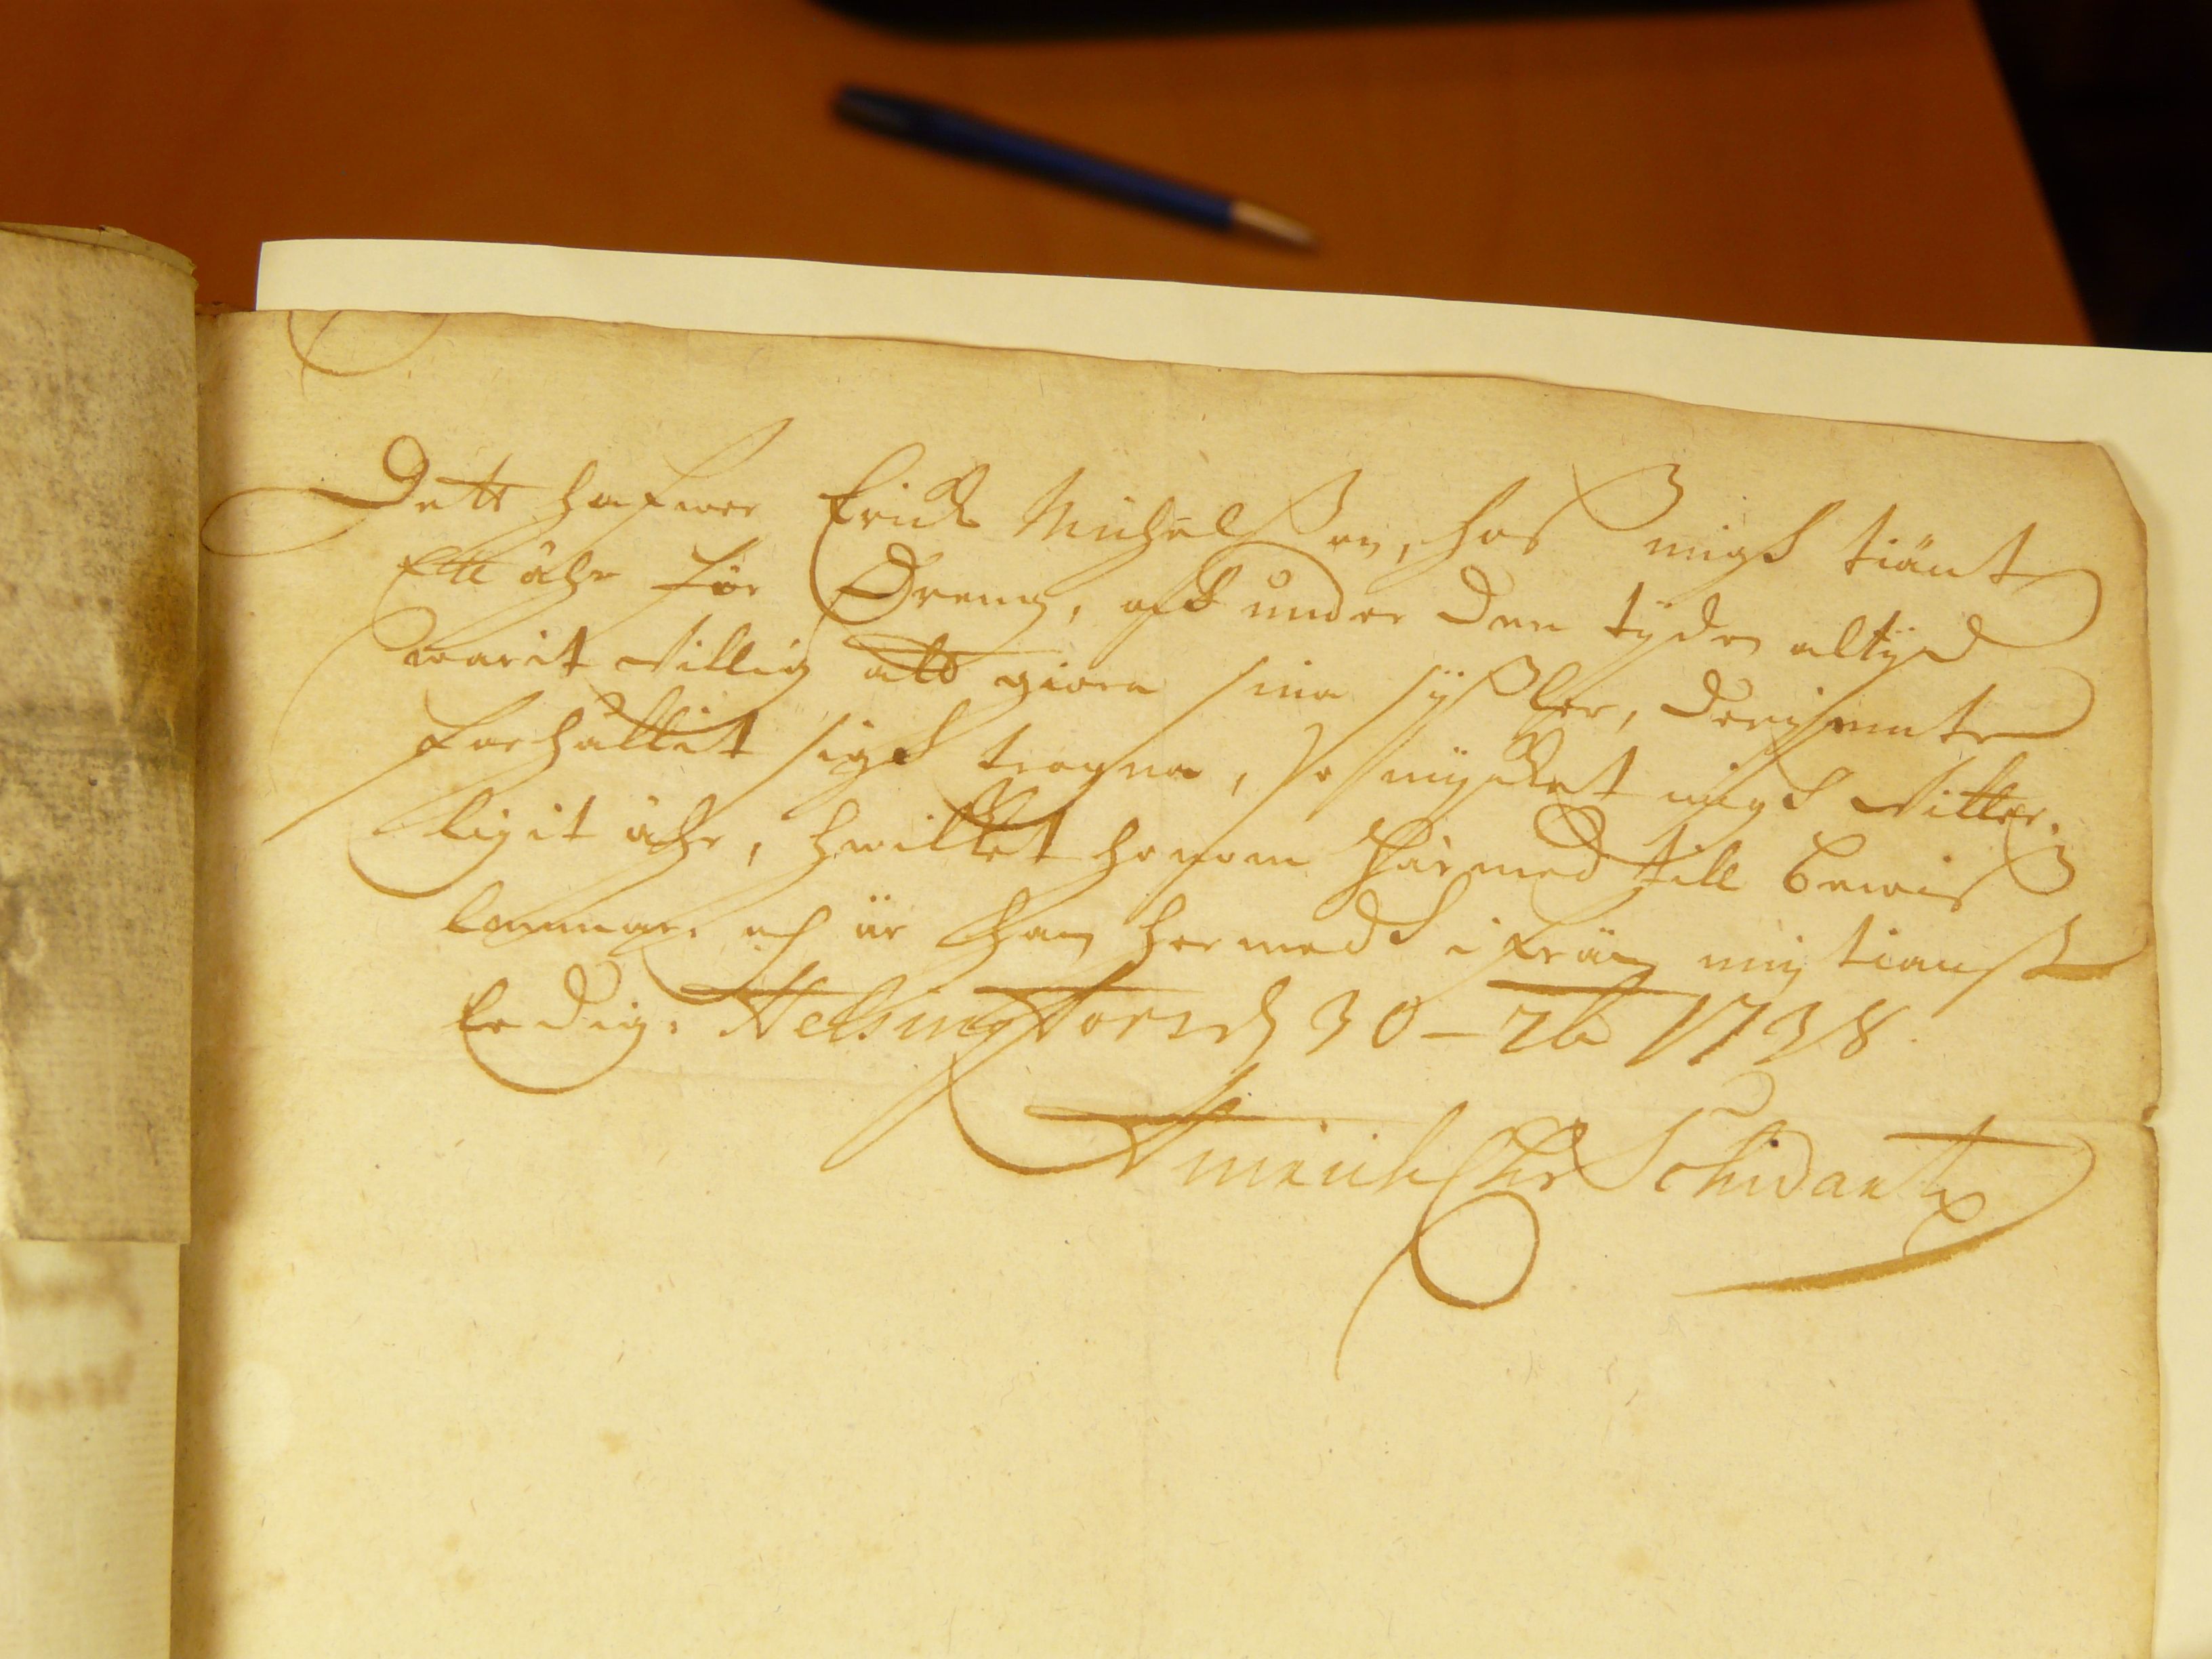 Dett hafwer Erich Michelsson, hos migh tiänt
Ett åhr för Dreng, och under den tyden altyd
warit willig att giöra sina syßler, derjemte
forhållit sigh trogna, så mycket migh witter,
ligit åhr, hwilket honom härmed till bewis
lemnas. och är han hermedh ifrån min tianst
ledig. Helsingfors d 30 1738
Schidantz